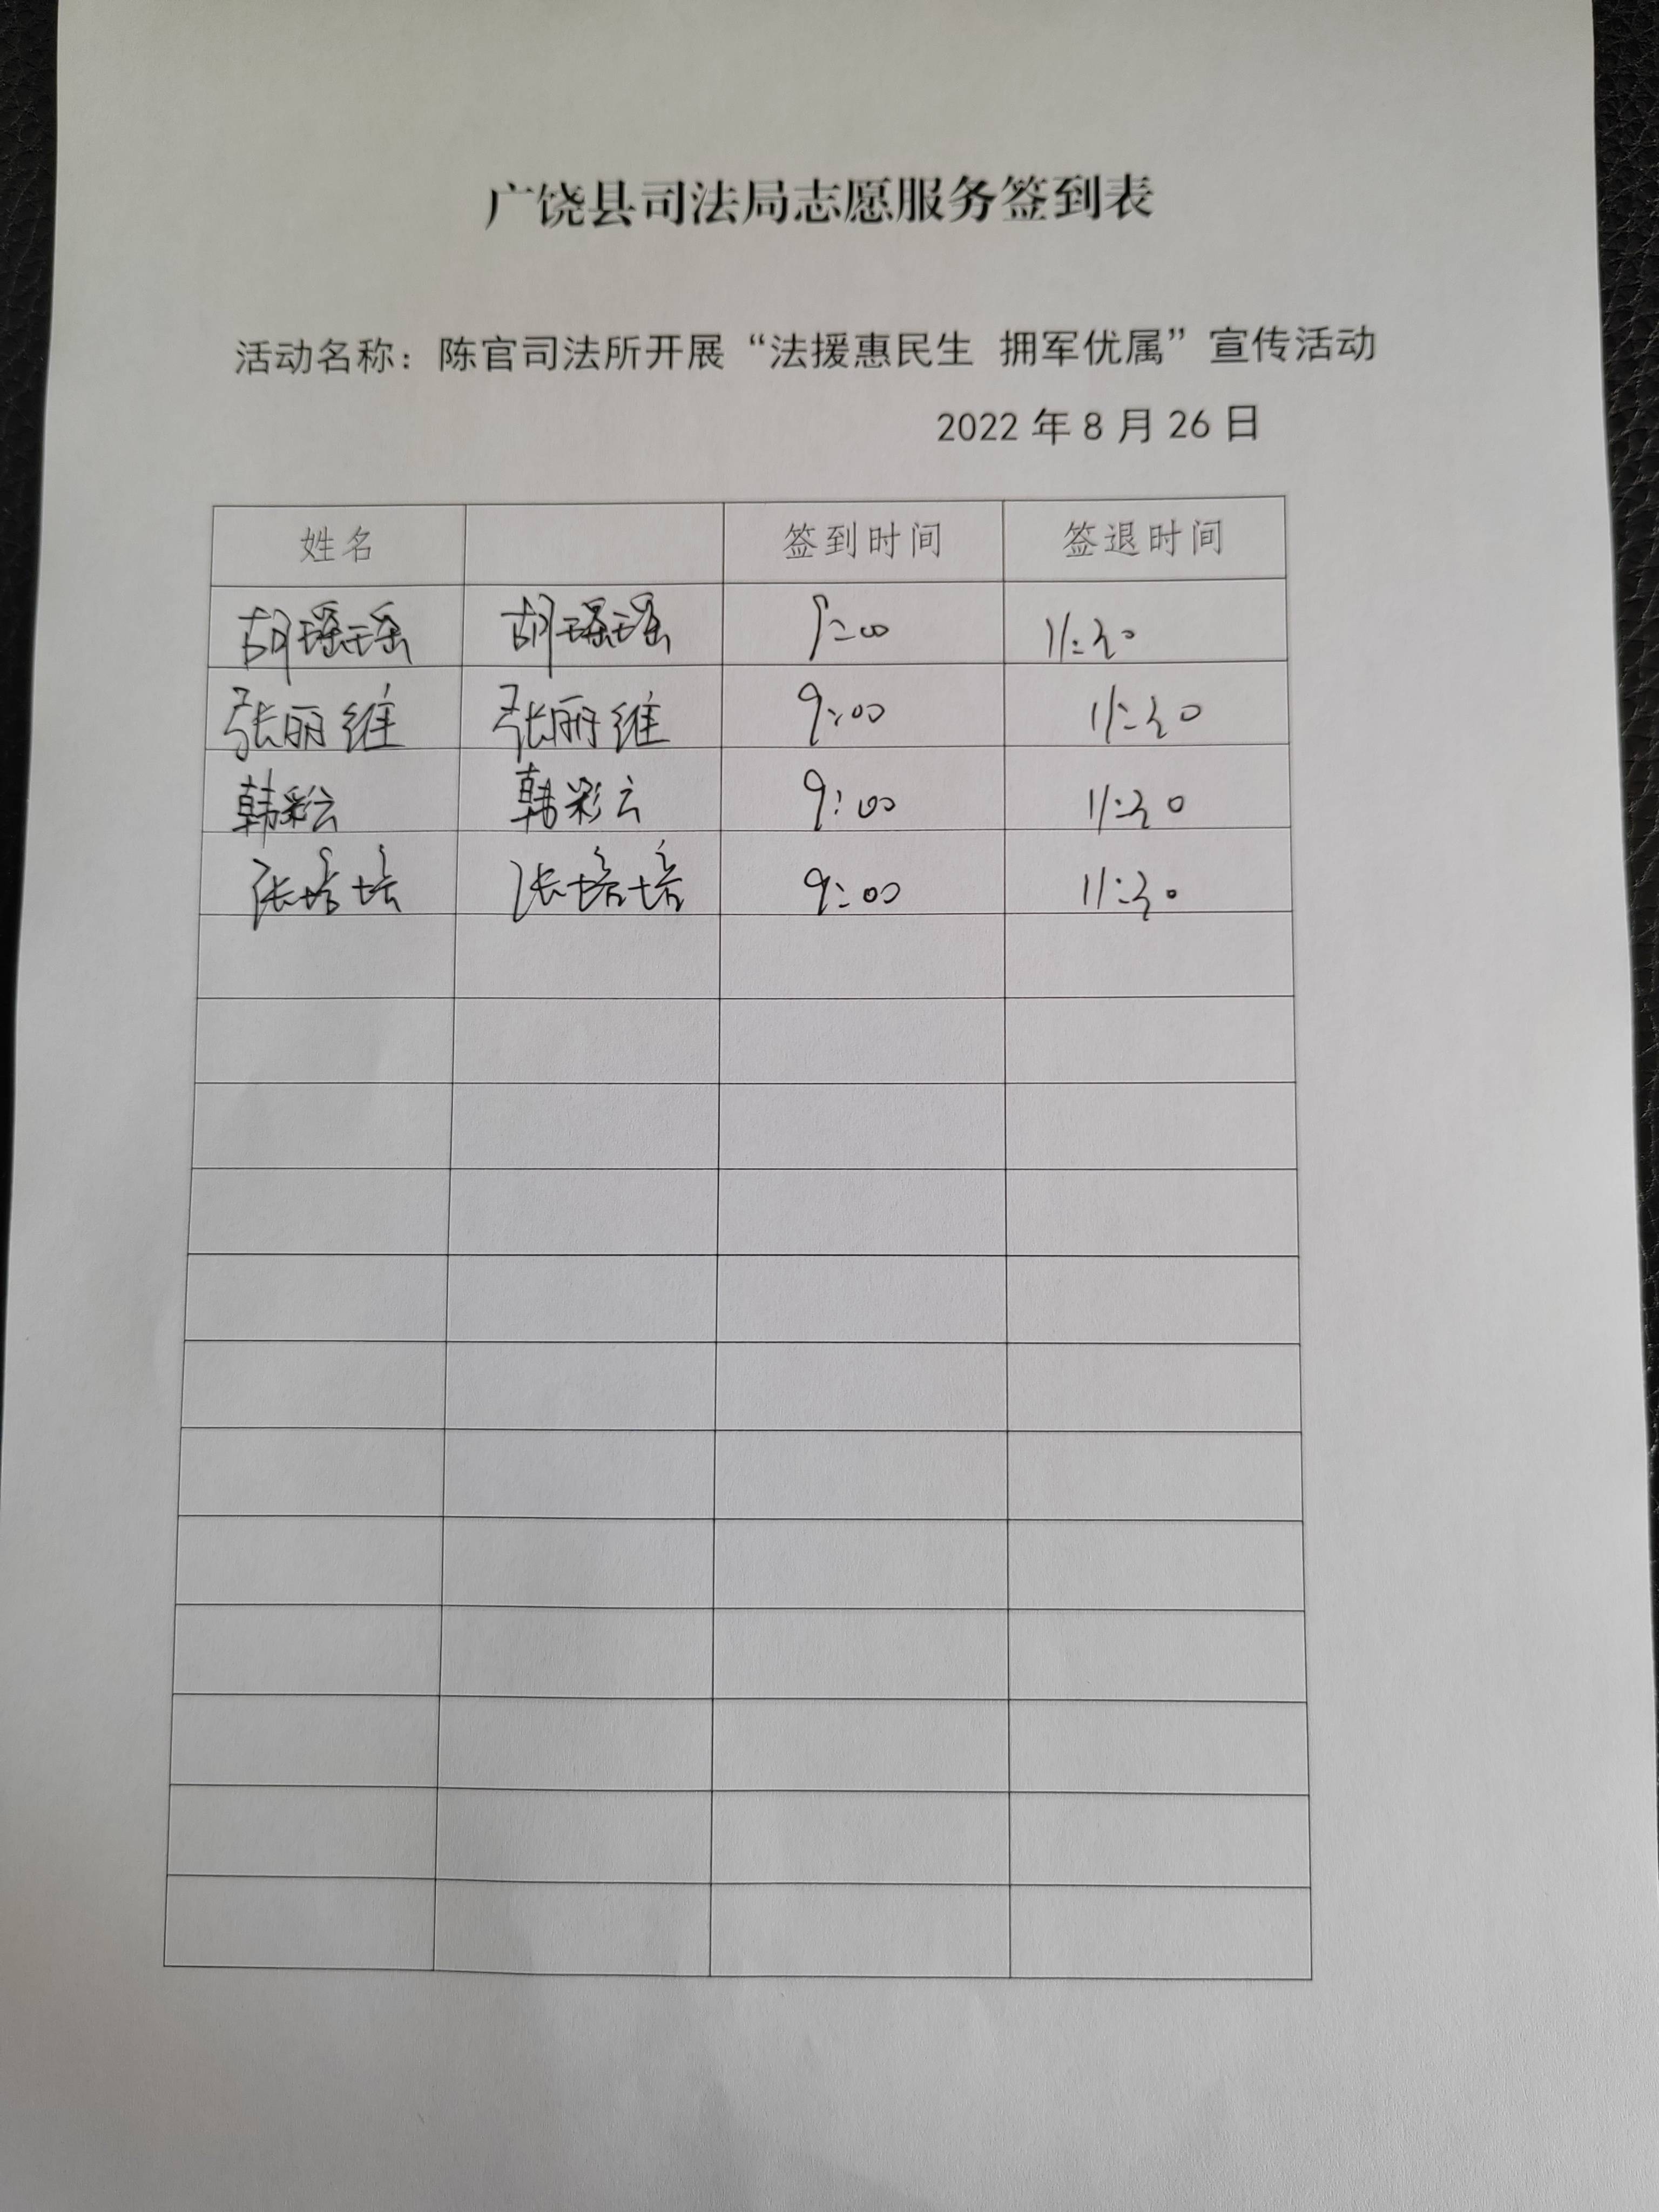 广饶县司法局志愿服务签到表
活动名称：陈官司法所开展“法援惠民生 拥军优属”宣传活动
2022年8月26日
姓名 签到时间 签退时间
胡瑶瑶 胡瑶瑶 9:00 11:30
张丽维 张丽维 9:00 11:30
韩彩云 韩彩云 9:00 11:30
张培培 张培培 9:00 11:30